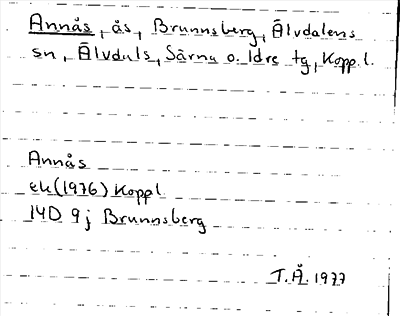 Annås, ås, Brunnsberg, Älvdalens
sn, Älvdals, Särna o. Idre tg, Kopp.l.
Annås
ek (1976) Koppl
14D 9j Brunnsberg
T.Å. 1977